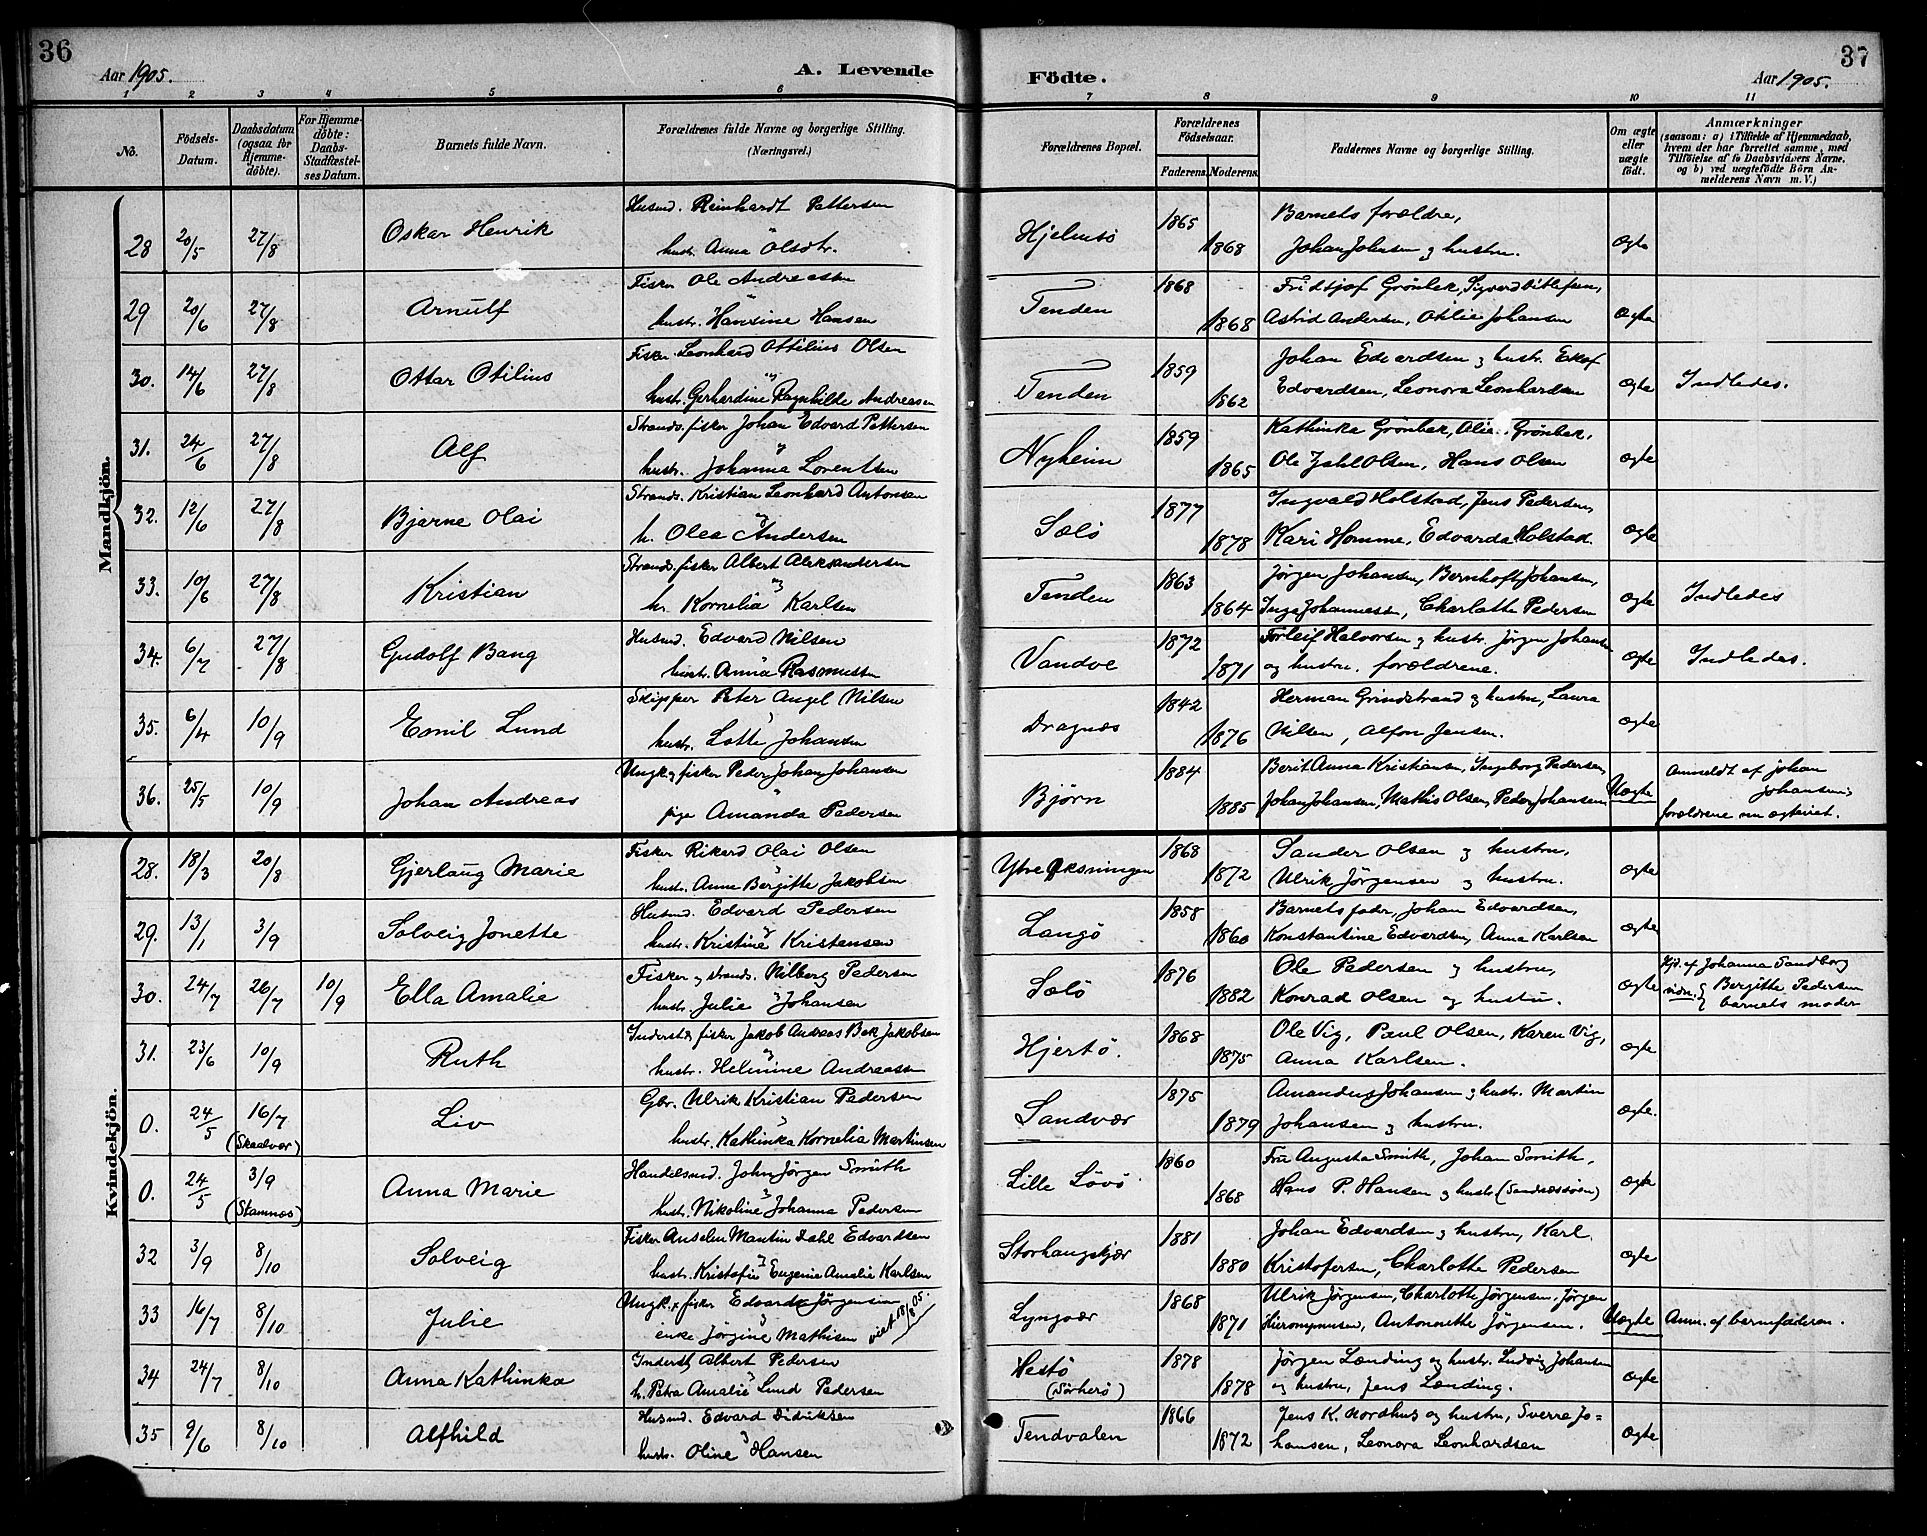 36
Aar 1905.
A. Levende
Födte.
37
Aar 1905.
1 2 3 4 5 6 7 8 9 10 11
No.
Födsels-Datum.
Daabsdatum (ogsaa for Hjemme-döbte).
For Hjemme-döbte: Daabs-Stadfæstel-ses Datum.
Barnets fulde Navn.
Forældrenes fulde Navne og borgerlige Stilling. (Næringsvei.)
Forældrenes Bopæl.
Forældrenes Födselsaar.
Faderens. Moderens.
Faddernes Navne og borgerlige Stilling.
Om ægte eller uægte födt.
Anmærkninger
(saasom: a) i Tilfælde af Hjemmedaab,
hvem der har forrettet samme, med
Tilföielse af to Daabsvidners Navne,
og b) ved uægtefödte Börn An-
melderens Navn m. V.)
Mandkjön.
Husmd. Reinhardt Pettersen 1865 Barnets forældre,
28 20/5 27/8 Oskar Henrik hustr. Anna Olsdtr. Hjelmsö 1868 Johan Johnsen og hustru. Ægte
Fisker Ole Andreassen 1868 Fridtjof Grönbek, Sigvard Ditlefsen,
29 20/6 27/8 Arnulf hustr. Hansine Hansen Tenden 1868 Astrid Andersen, Otilie Johansen Ægte
Fisker Leonhard Ottilius Olsen 1859 Johan Edvardsen og hustr.
30. 14/6 27/8 Ottar Otilius hustr. Gerhardine Ragnhilde Andreasen Tenden 1862 Edvardsen, Leonora Leonhardsen Ægte Indledes.
Strands. fisker Johan Edvard Pettersen 1859 Kathinka Grönbek, Grönbek,
31. 24/6 27/8 Alf hustr. Johanna Lorentsen Nyheim 1865 Ole Jahl Olsen, Hans Olsen Ægte
Strands. Kristian Leonhard Antonsen 1877 Ingvald Holstad, Jens Pedersen,
32. 12/6 27/8 Bjarne Olai h. Olea Andersen Sælö 1878 Kari Homme, Edvarda Holstad. Ægte
Strands. fisker Albert Aleksandersen 1863 Jörgen Johansen, Bernhoft Johansen,
33. 10/6 27/8 Kristian h. Kornelia Karlsen Tenden 1864 Inga Johannessen, Charlotte Pedersen Ægte Indledes
Husmd. Edvard Nilsen 1872 Torleif Halvorsen og hustr. Jörgen Johansen
34. 6/7 27/8 Gudolf Bang hustr. Anna Rasmussen Vandve 1871 og hustru. forældrene. Ægte Indledes.
Skipper Peter Angel Nilsen 1842 Herman Grindstrand og hustru, Laura
35. 6/4 10/9 Emil Lund hustr. Lotte Johansen Dragnæs 1876 Nilsen, Alfon Jensen. Ægte
Ungk. og fisker Peder Johan Johansen 1884 Berit Anna Kristiansen, Ingeborg Pedersen, Anmeldt af Johan
36. 25/5 10/9 Johan Andreas pige Amanda Pedersen Björn 1885 Johan Johansen, Mathis Olsen, Peder Johansen Uægte Johansen; forældrene nu ægteviet.
Kvindekjön.
Fisker Rikard Olai Olsen 1868 Sander Olsen og hustru,
28. 18/3 20/8 Gjerlaug Marie hustr. Anne Bergitte Jakobsen Ytre Öksningen 1872 Ulrik Jörgensen og hustru. Ægte
Husmd. Edvard Pedersen 1858 Barnets fader, Johan Edvardsen,
29. 13/1 3/9 Solveig Jonette hustr. Kristine Kristensen Langö 1860 Konstantine Edvardsen, Anna Karlsen Ægte
Fisker og strands. Nilberg Pedersen 1876 Ole Pedersen og hustru, Hjd. af Johanna Sandberg
30. 24/7 26/7 10/9 Ella Amalie hustr. Julie Johansen Sælö 1882 Konrad Olsen og hustru. Ægte vidn. Bergitte Pedersen og barnets moder
Inderst & fisker Jakob Andreas Bek Jakobsen 1868 Ole Vig, Paul Olsen, Karen Vig,
31. 23/6 10/9 Ruth hustr. Helmine Andreassen Hjertö. 1875 Anna Karlsen. Ægte
Gbr. Ulrik Kristian Pedersen 1875 Amandus Johansen og hustr. Martin
0. 24/5 16/7 (Skaalvær) Liv hustr. Kathinka Kornelia Martinsen Sandvær 1879 Johansen og hustru. Ægte.
Handelsmd. John Jörgen Smith 1860 Fru Augusta Smith, Johan Smith,
0. 24/5 3/9 (Stamnæs) Anna Marie hustr. Nikoline Johanna Pedersen Lille Lövö 1868 Hans P. Hansen og hustr. (Sandnæssöen) Ægte
Fisker Anselm Martin Dahl Edvardsen 1881 Johan Edvardsen og hustru, Karl
32 3/9 8/10 Solveig hustr. Kristofie Eugenie Amalie Karlsen Storhaugskjær 1880 Kristofersen, Charlotte Pedersen Ægte
Ungk. & fisker Edvard Jörgensen 1868 Ulrik Jörgensen, Charlotte Jörgensen, Jörgen
33 16/7 8/10 Julie enke Jörgine Mathisen viet 18/8 05. Lyngvær 1871 Hieronymusen, Antonette Jörgensen. Uægte Anm. af barnefaderen.
Inderst Albert Pedersen 1878 Jörgen Lænding og hustr. Ludvig Johansen
34 24/7 8/10 Anna Kathinka h. Petra Amalie Lund Pedersen Hestö (Sörherö) 1878 og hustru, Jens Lænding. Ægte
Husmd. Edvard Didriksen 1866 Jens K. Nordhus og hustru, Sverre Jo=
35 9/6 8/10 Alfhild hustr. Oline Hansen Tendvalen 1872 hansen, Leonora Leonhardsen Ægte